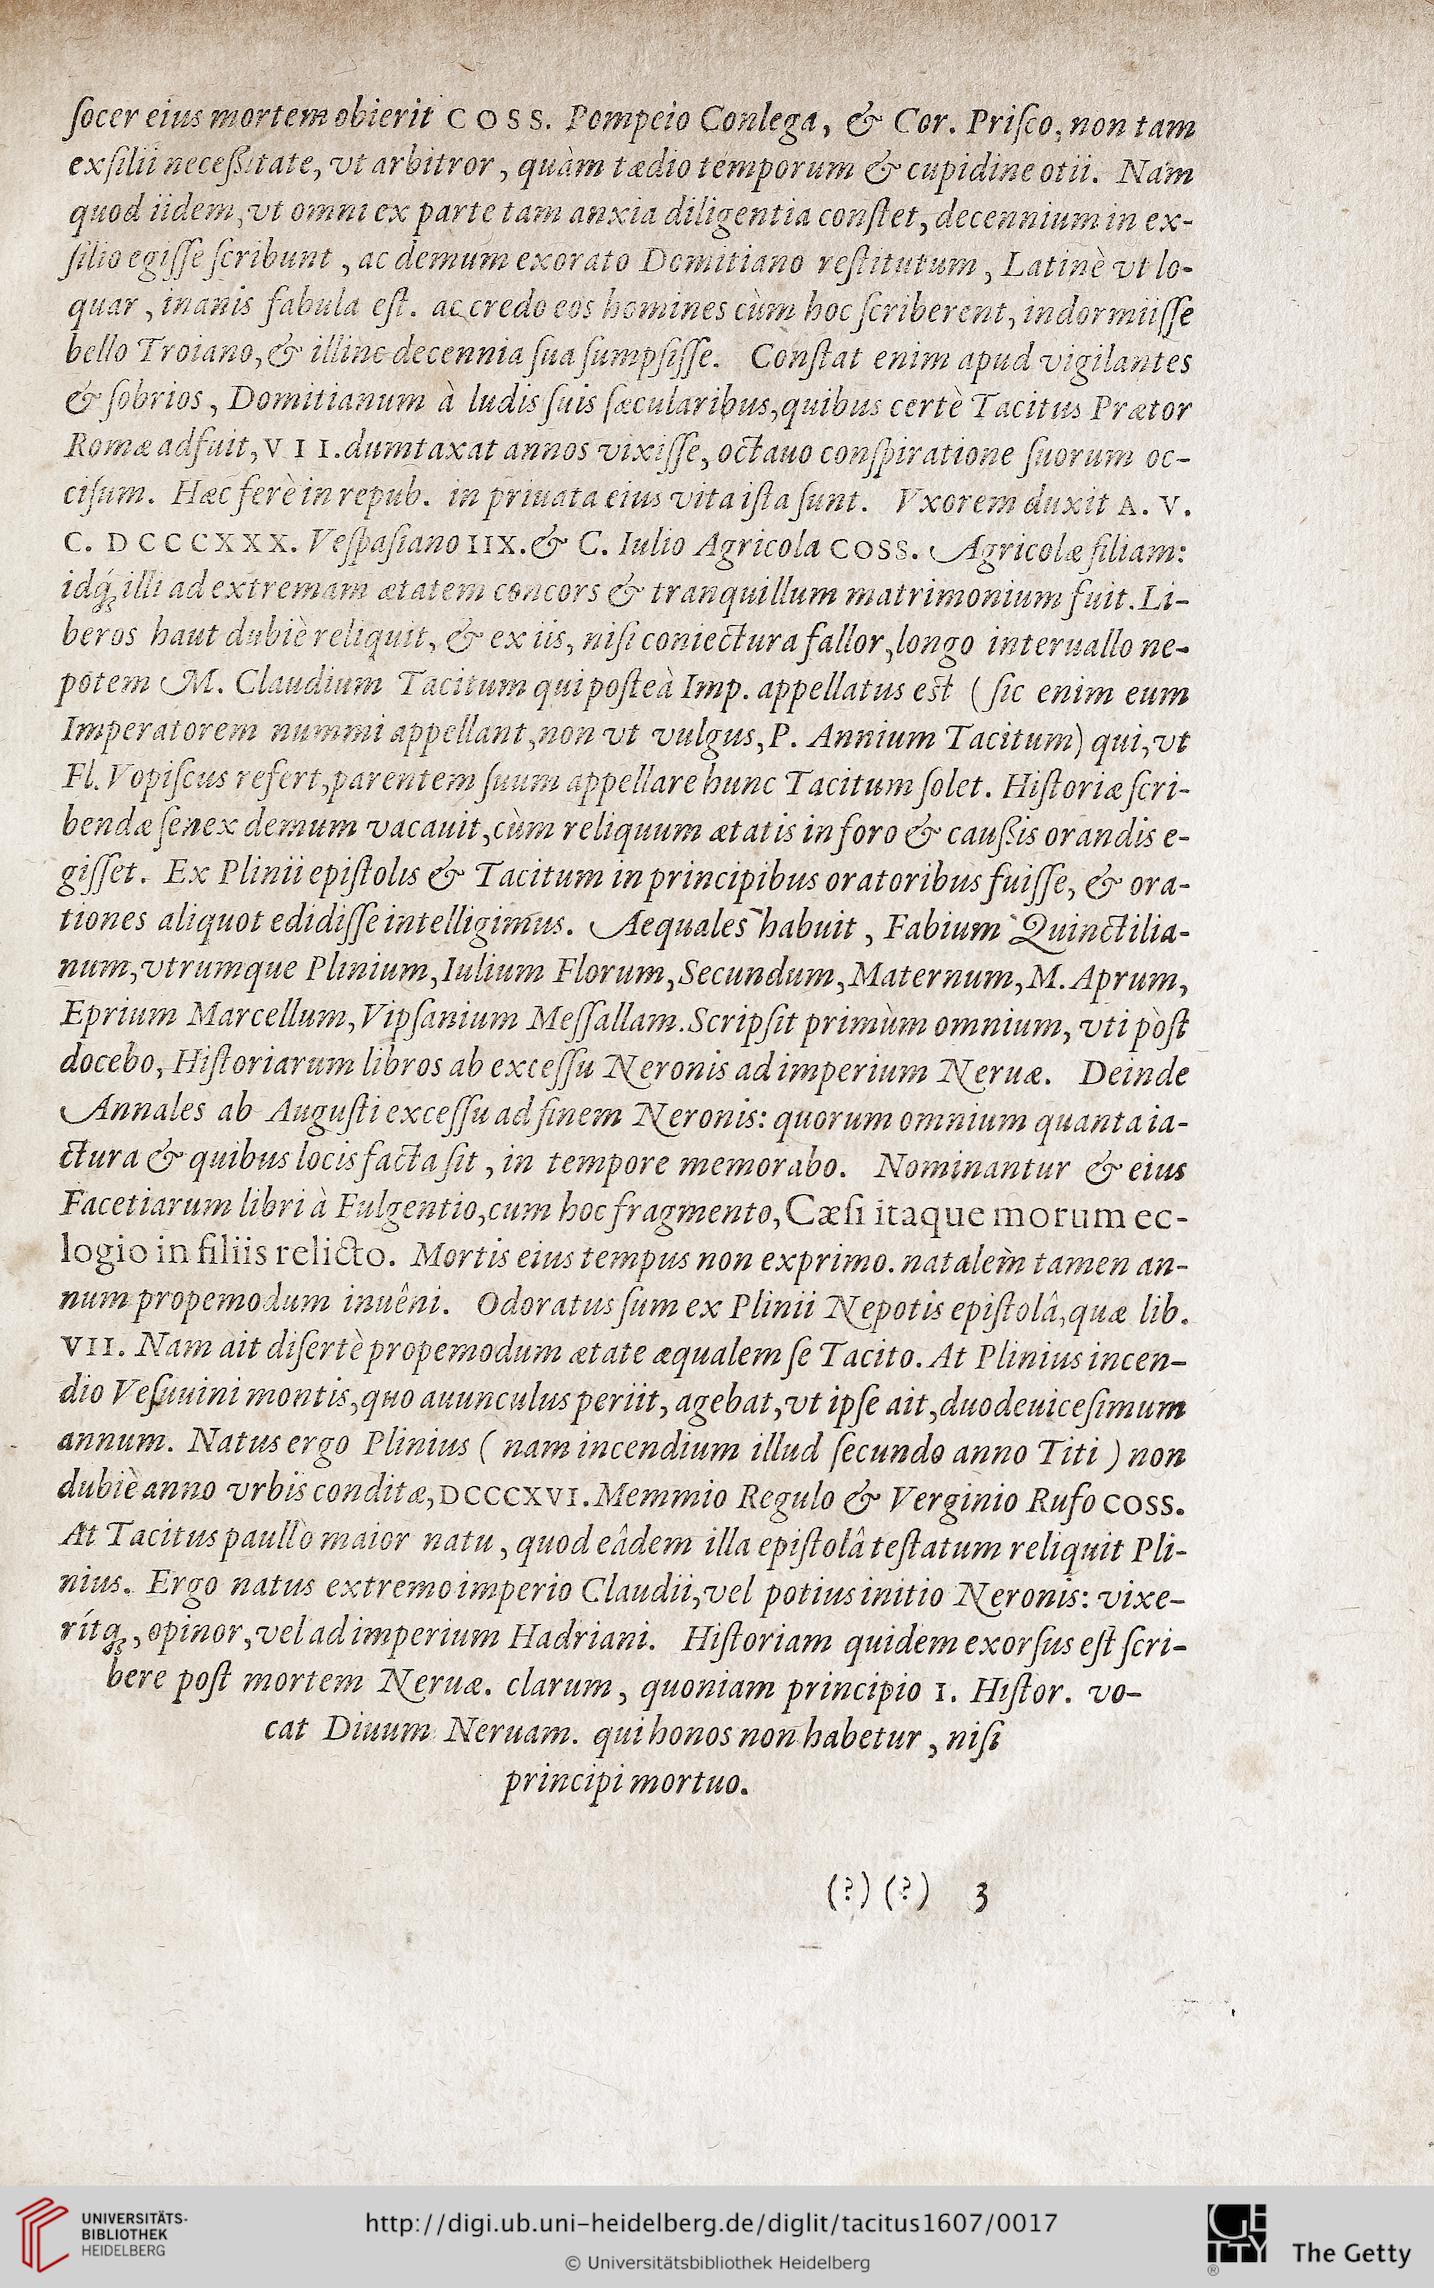 ſocer eius mortem obierit COSS. Pompeio Conlega, & Cor. Priſco, non tam
exſilii neceßitate, vt arbitror, quàm tædio temporum & cupidine otii. Nam
quod iidem, vt omni ex parte tam anxia diligentia conſtet, decennium in ex-
ſilio egiſſe ſcribunt, ac demum exorato Domitiano reſtitutum, Latinè vt lo-
quar, inanis fabula eſt. ac credo eos homines cùm hoc ſcriberent, indormiiſſe
bello Troiano, & illinc decennia ſua ſumpſiſſe. Conſtat enim apud vigilantes
& ſobrios, Domitianum à ludis ſuis ſæcularibus, quibus certè Tacitus Prætor
Romæ adfuit, VII. dumtaxat annos vixiſſe, octauo conſpiratione ſuorum oc-
ciſum. Hæc ferè in repub. in priuata eius vita iſta ſunt. Vxorem duxit A. V.
C. DCCCXXX. Veſpaſiano IIX. & C. Iulio Agricola COSS. Agricolæ filiam:
idq́; illi ad extremam ætatem concors & tranquillum matrimonium fuit. Li-
beros haut dubiè reliquit, & ex iis, niſi coniectura fallor, longo interuallo ne-
potem M. Claudium Tacitum qui poſteà Imp. appellatus est (ſic enim eum
Imperatorem nummi appellant, non vt vulgus, P. Annium Tacitum) qui, vt
Fl. Vopiſcus refert, parentem ſuum appellare hunc Tacitum ſolet. Hiſtoriæ ſcri-
bendæ ſenex demum vacauit, cùm reliquum ætatis in foro & caußis orandis e-
giſſet. Ex Plinii epiſtolis & Tacitum in principibus oratoribus fuiſſe, & ora-
tiones aliquot edidiſſe intelligimus. Aequales habuit, Fabium Quinctilia-
num, vtrumque Plinium, Iulium Florum, Secundum, Maternum, M. Aprum,
Eprium Marcellum, Vipſanium Meſſallam. Scripſit primùm omnium, vti pòſt
docebo, Hiſtoriarum libros ab exceſſu Neronis ad imperium Neruæ. Deinde
Annales ab Auguſti exceſſu ad finem Neronis: quorum omnium quanta ia-
ctura & quibus locis facta ſit, in tempore memorabo. Nominantur & eius
Facetiarum libri à Fulgentio, cum hoc fragmento, Cæſi itaque morum ec-
logio in filiis relicto. Mortis eius tempus non exprimo. natalem tamen an-
num propemodum inuêni. Odoratus ſum ex Plinii Nepotis epiſtolâ, quæ lib.
VII. Nam ait diſertè propemodum ætate æqualem ſe Tacito. At Plinius incen-
dio Veſuuini montis, quo auunculus periit, agebat, vt ipſe ait, duodeuiceſimum
annum. Natus ergo Plinius (nam incendium illud ſecundo anno Titi) non
dubiè anno vrbis conditæ, DCCCXVI. Memmio Regulo & Verginio Rufo COSS.
At Tacitus paullò maior natu, quod eâdem illa epiſtolâ teſtatum reliquit Pli-
nius. Ergo natus extremo imperio Claudii, vel potius initio Neronis: vixe-
rítq;, opinor, vel ad imperium Hadriani. Hiſtoriam quidem exorſus eſt ſcri-
bere poſt mortem Neruæ. clarum, quoniam principio I. Hiſtor. vo-
cat Diuum Neruam. qui honos non habetur, niſi
principi mortuo.
(?) (?) 3
UNIVERSITÄTS-
BIBLIOTHEK
HEIDELBERG
http://digi.ub.uni-heidelberg.de/diglit/tacitus1607/0017
© Universitätsbibliothek Heidelberg
GETTY
The Getty